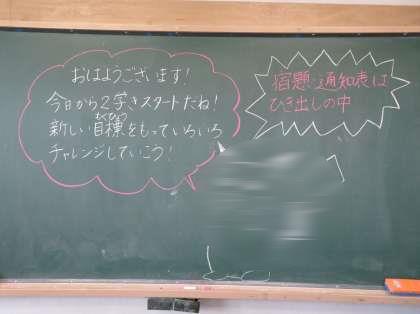 おはようございます!
今日から2学きスタートだね!
新しい目標をもっていろいろ
もくひょう
チャレンジしていこう!
宿題・通知表は
ひき出しの中